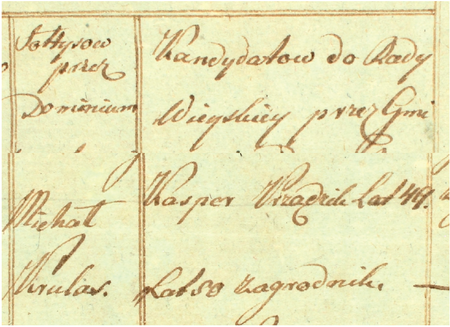 Sołtysow
przez
Dominium
Kandydatow do Rady
Wieyskiey przez Gmi
Michał
Krulas.
Kasper Rządzik Lat 49.
Lat 50 Zagrodnik.